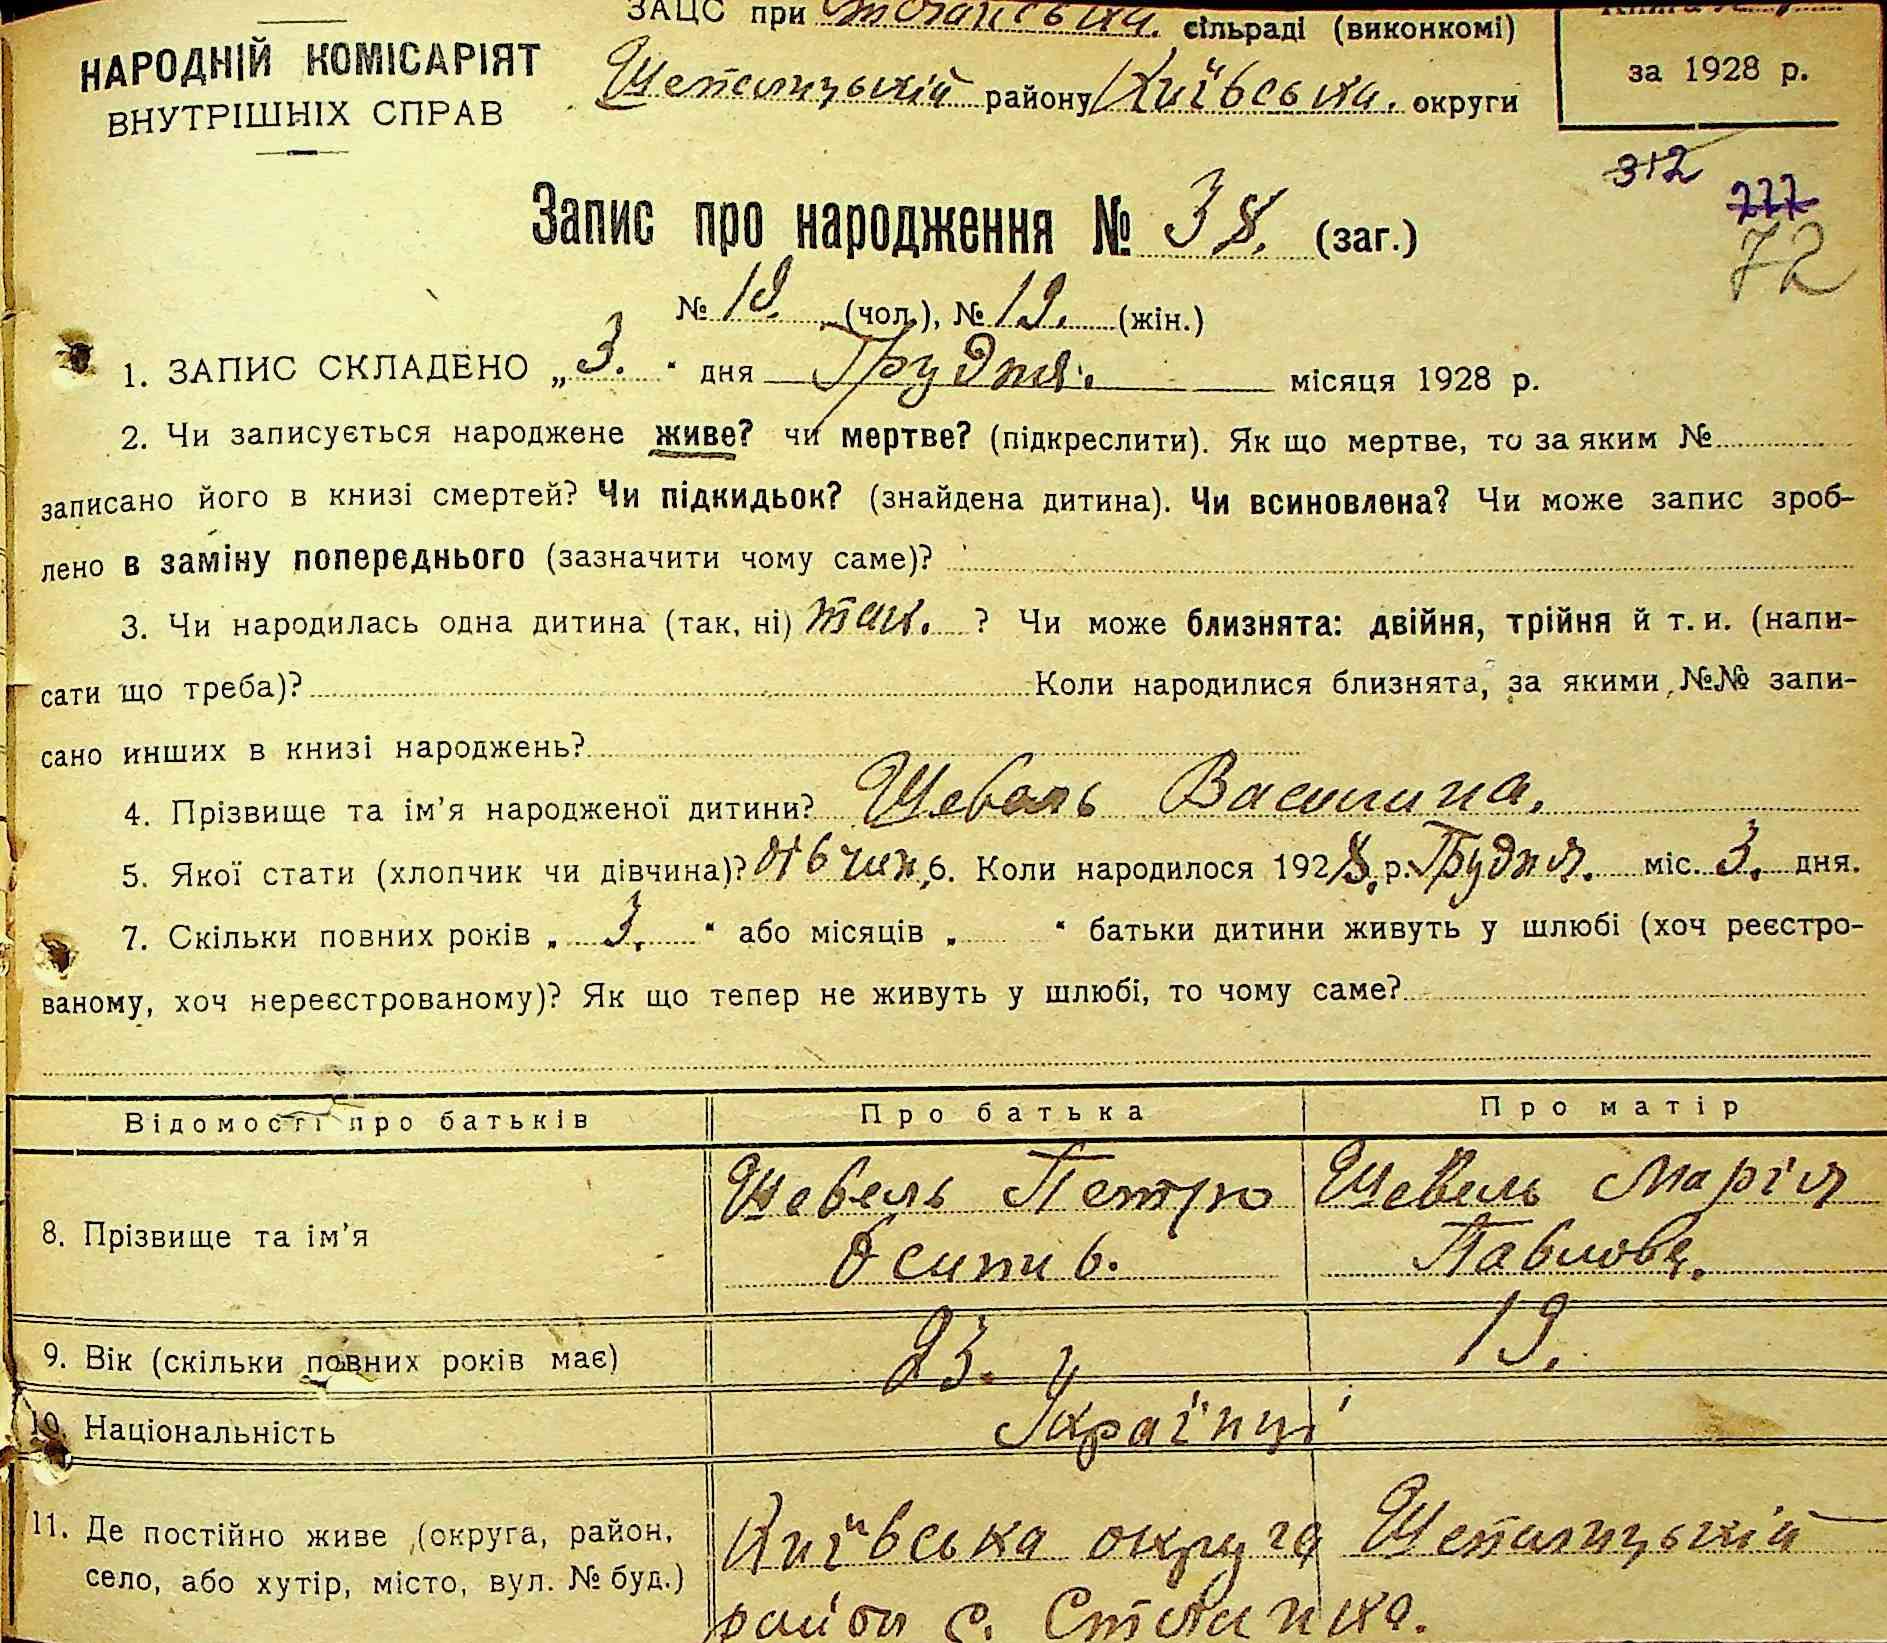 ЗАЦС при сільраді (виконкомі)
НАРОДНІЙ КОМІСАРІЯТ
ВНУТРІШНІХ СПРАВ
району Київська. округи
за 1928 р.
312
277
72
Запис про народження № 38. (заг.)
№ 19. (чол.), № 19. (жін.)
1. ЗАПИС СКЛАДЕНО „3.“ дня Грудня. місяця 1928 р.
2. Чи записується народжене живе? чи мертве? (підкреслити). Як що мертве, то за яким №
записано його в книзі смертей? Чи підкидьок? (знайдена дитина). Чи всиновлена? Чи може запис зроб-
лено в заміну попереднього (зазначити чому саме)?
3. Чи народилась одна дитина (так, ні) так. ? Чи може близнята: двійня, трійня й т. и. (напи-
сати що треба)? Коли народилися близнята, за якими №№ запи-
сано инших в книзі народжень?
4. Прізвище та ім’я народженої дитини? Шевель Василина.
5. Якої стати (хлопчик чи дівчина)? дівчин. 6. Коли народилося 1928. р. Грудня. міс. 3. дня.
7. Скільки повних років „3.“ або місяців „ “ батьки дитини живуть у шлюбі (хоч реєстро-
ваному, хоч нереєстрованому)? Як що тепер не живуть у шлюбі, то чому саме?
Відомості про батьків Про батька Про матір
8. Прізвище та ім’я
Шевель Петро
Осипів.
Шевель Марія
Павлова.
9. Вік (скільки повних років має) 23. 19.
10. Національність Українці
11. Де постійно живе (округа, район,
село, або хутір, місто, вул. № буд.)
Київська округа
район с.